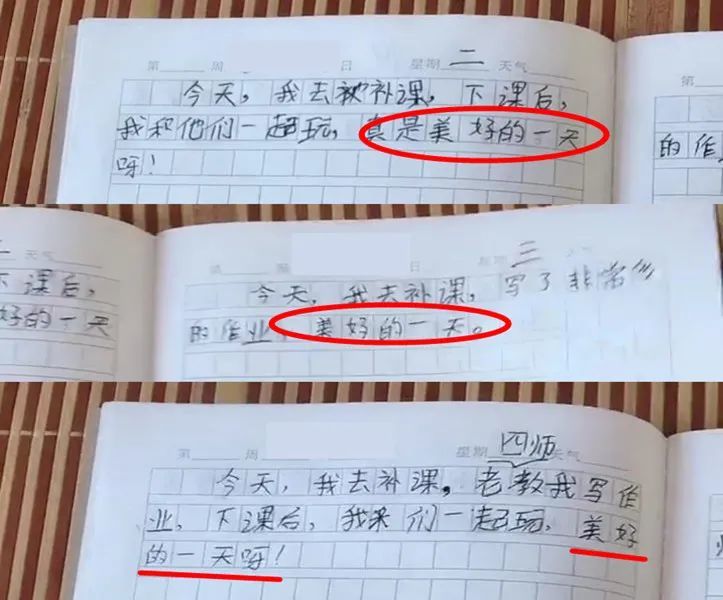 第 周 日 星期 二 天气
今天，我去被补课，下课后，
我和他们一起玩，真是美好的一天
呀！
第
的作
天气
下课后，
好的一天
第 周 日 星期 三 天气
今天，我去补课，写了非常多
的作业，美好的一天。
第 周 星期 四 天气
师
今天，我去补课，老教我写作
业，下课后，我来们一起玩，美好
的一天呀！
第